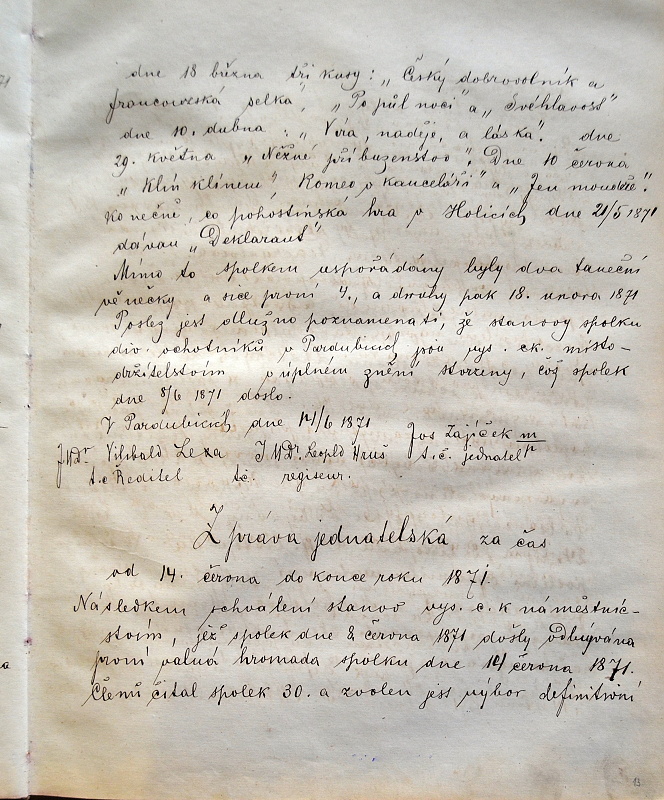 dne 18 března tři kusy: „Český dobrovolník a
francouzská selka", „Po půl noci" a „Svéhlavost"
dne 10. dubna: „Víra, naděje, a láska". dne
29. května „Něžné příbuzenstvo". Dne 10 června
„Klín klínem" Romeo v kanceláři" a „Jen moudře".
konečně, co pohostinská hra v Holicích dne 21/5 1871
dáván „Deklarant"
Mimo to spolkem uspořádány byly dva taneční
věnečky a sice první 4., a druhý pak 18. února 1871
Posléz jest dlužno poznamenati, že stanovy spolku
div. ochotníků v Pardubicích jsou vys. ck. místo-
držitelstvím v úplném znění stvrzeny, což spolek
dne 8/6 1871 došlo.
V Pardubicích dne 14/6 1871
JUDr Vilibald Lexa JUDr. Leopld Hruš Jos Zajíček m/p
t.c Ředitel t.č. regiseur. t.č. jednatel
Zpráva jednatelská za čas
od 14. června do konce roku 1871.
Následkem schválení stanov vys. c. k náměstnic-
stvím, jež spolek dne 8 června 1871 došly odbývána
první valná hromada spolku dne 14 června 1871.
Členů čítal spolek 30. a zvolen jest výbor definitivní
13